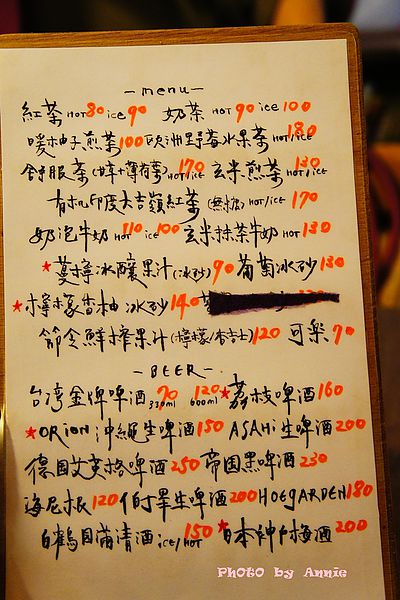 — menu —
紅茶 HOT 80 ice 90 奶茶 HOT 90 ice 100
暖柚子煎茶 100 歐洲野莓水果茶 HOT/ice 180
舒服茶 (甘草+薄荷葉) HOT/ice 170 玄米煎茶 HOT/ice 130
有机印度大吉嶺紅茶 (無糖) HOT/ice 170
奶泡牛奶 HOT 110 ice 100 玄米抹茶牛奶 HOT 130
★蔓檸冰釀果汁 (冰沙) 90 葡萄冰沙 130
★檸檬香柚冰沙 140
節令鮮榨果汁 (檸檬/本吉士) 120 可樂 70
— BEER —
台湾金牌啤酒 70 330ml 120 600ml ★荔枝啤酒 160
★ORION 沖繩生啤酒 150 ASAHI 生啤酒 200
德国艾英格啤酒 250 帝国黑啤酒 230
海尼根 120 伯畢生啤酒 200 HOEGARDEN 180
白鶴目滿清酒 ice/HOT 150 ★日本紳士梅酒 200
Photo by Annie